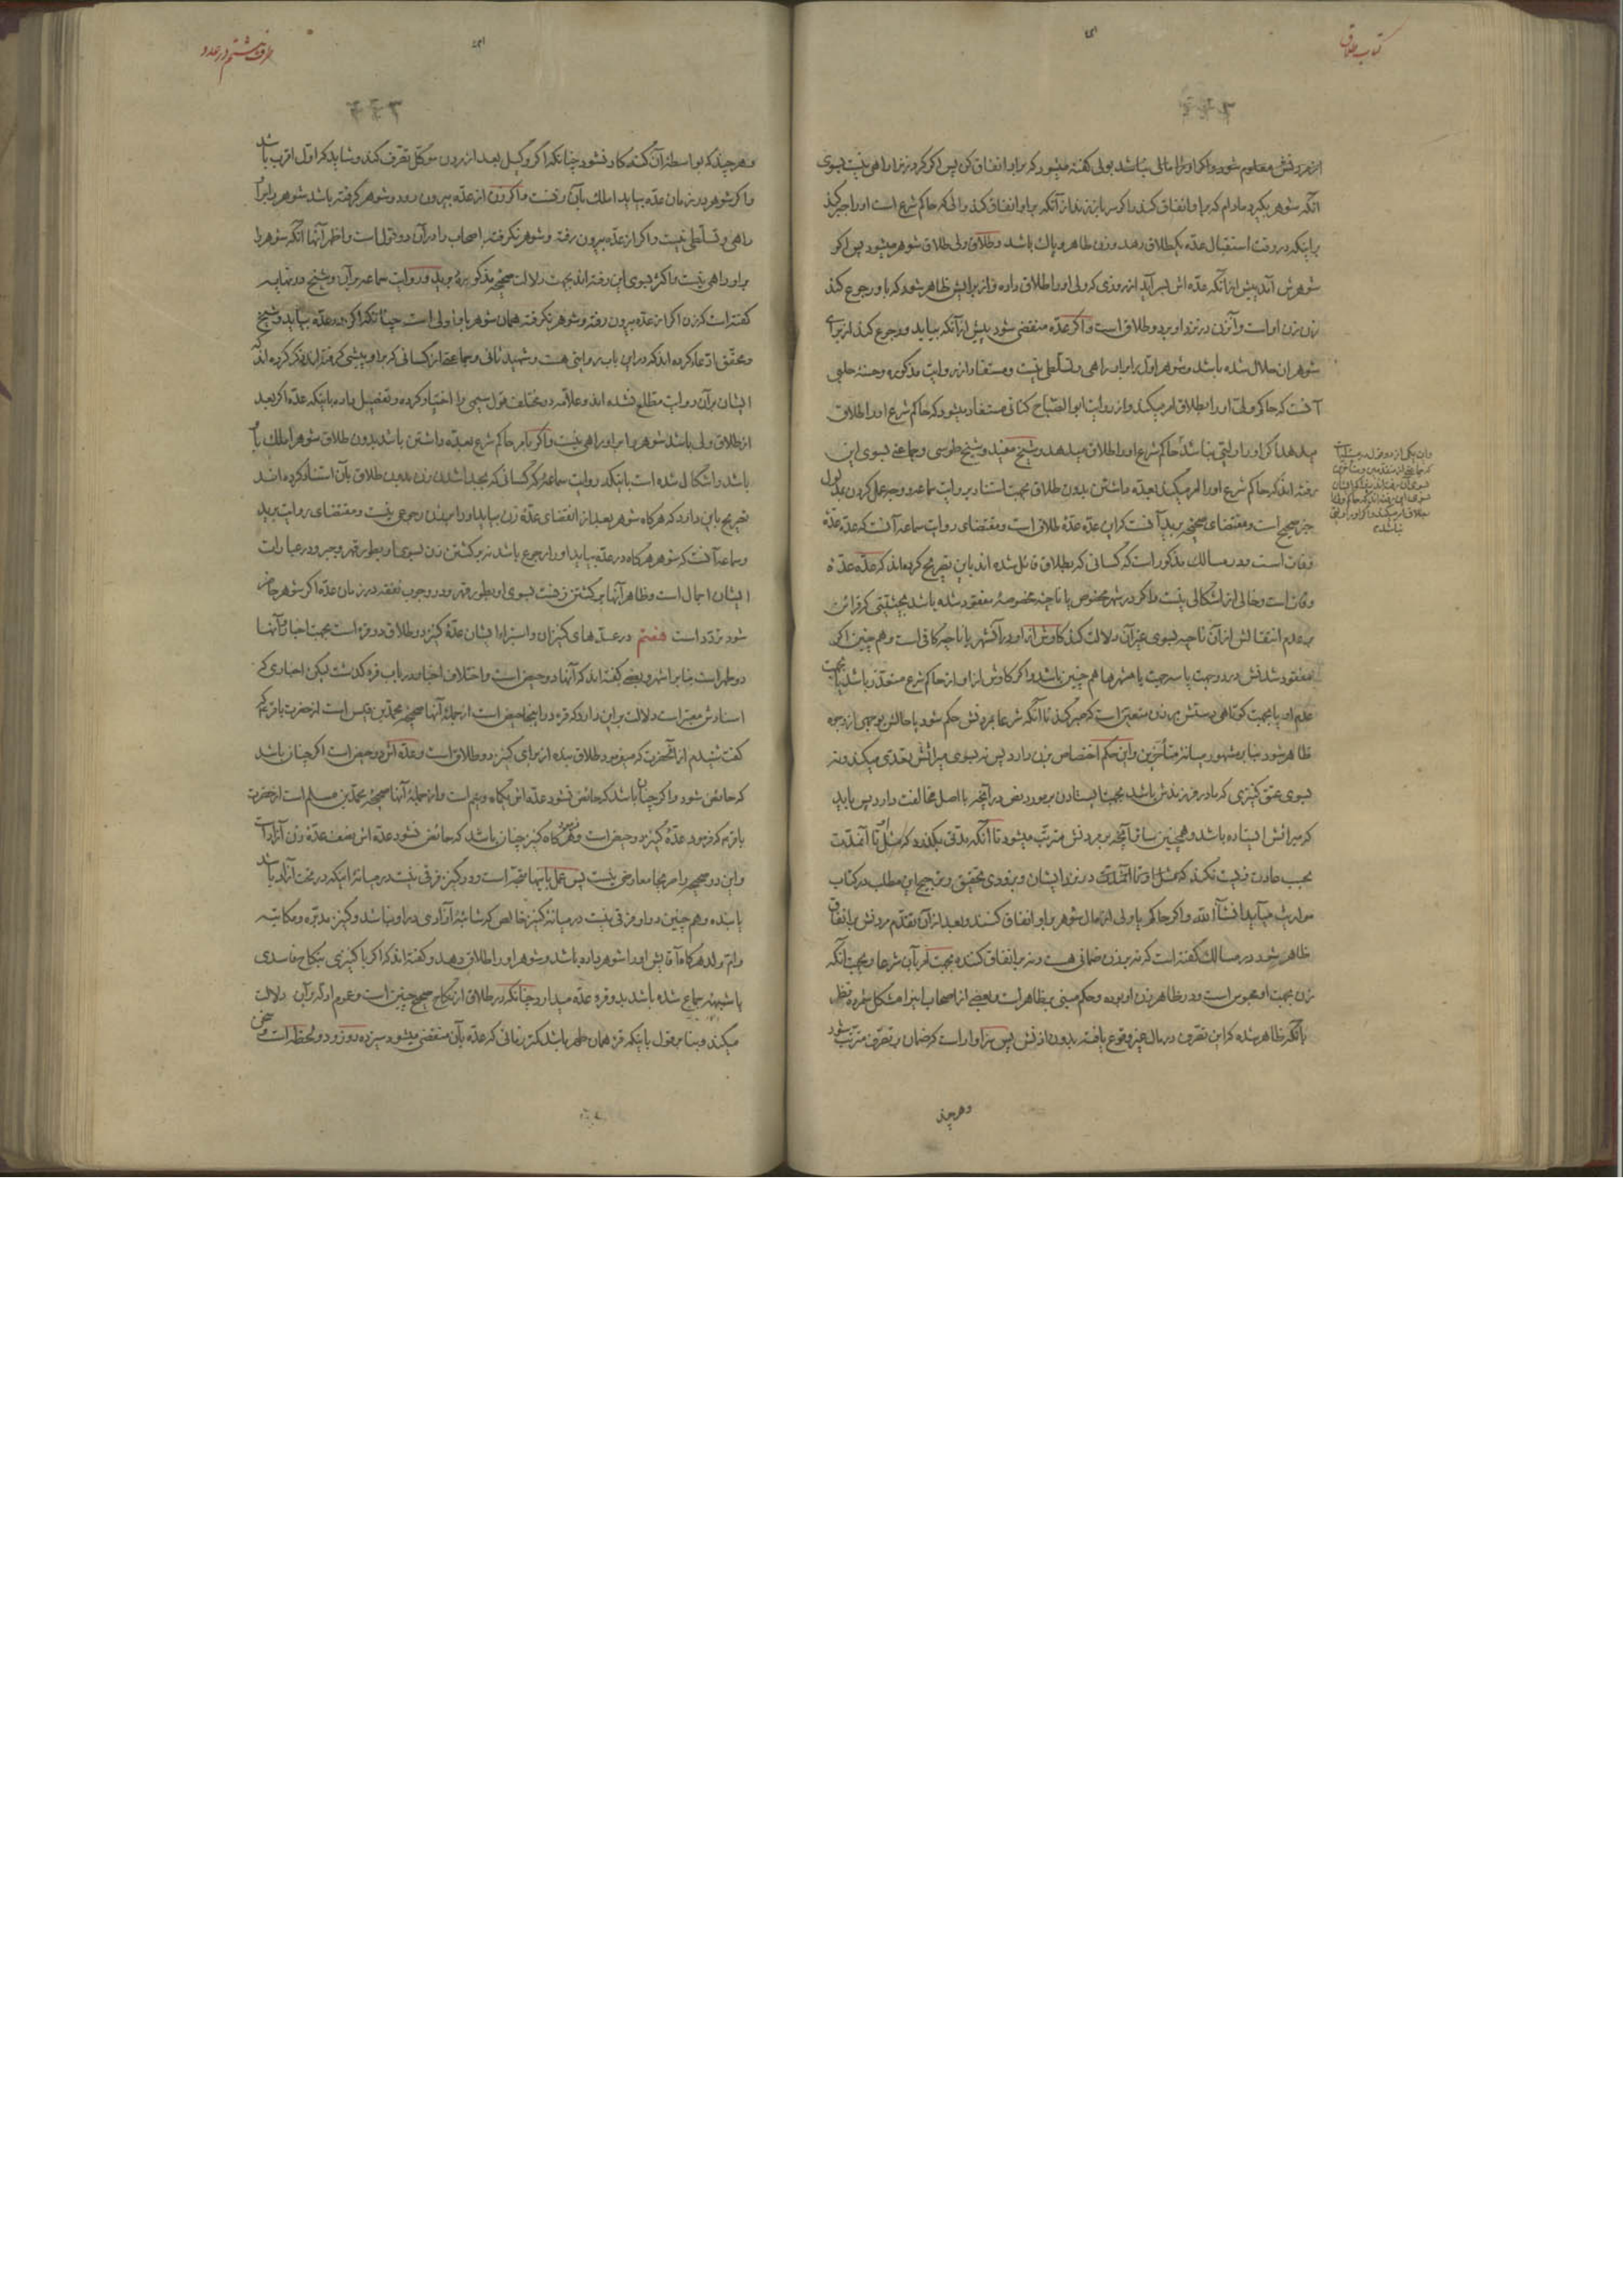 کتاب طلاق
از مردنش معلوم شود و اگر او را مالی نباشد بولی گفته میشود که بر او انفاق کن پس اگر کرد زنرا راهی نیست بسوی
آنکه شوهر بگیرد مادام که بر او انفاق کند و اگر سر باز زند از آنکه بر او انفاق کند والی که حاکم شرع است او را جبر کند
بر اینکه در وقت استقبال عده یکطلاق دهد و زن طاهر و پاک باشد و طلاق ولی طلاق شوهر میشود پس اگر
شوهرش آمد پیش از آنکه عده اش بسر آید از روزی که ولی او را طلاق داده و از برایش ظاهر شود که باو رجوع کند
زن زن او است و آنزن در نزد او بر دو طلاق است و اگر عده منقضی شود پیش از آنکه بیاید و رجوع کند از برای
شوهران حلال شده باشد و شوهر اول را بر او راهی و تسلطی نیست و مستفاد از روایت مذکوره و حسنه حلبی
آنست که حاکم ولی او را بطلاق امر میکند و از روایت ابو الصباح کنانی مستفاد میشود که حاکم شرع او را طلاق
میدهد اگر او را ولیی نباشد حاکم شرع او را طلاق میدهد و شیخ مفید و شیخ طوسی و جماعتی بسوی این
رفته اند که حاکم شرع او را امر میکند بعده داشتن بدون طلاق بجهت استناد بروایت سماعه و وجه عمل کردن بمدلول
خبر صحیح است و مقتضای صحیحه برید آنست که این عده عدهٔ طلاق است و مقتضای روایت سماعه آنست که عده عدهٔ
وفات است و در مسالک مذکور است که کسانی که بطلاق قائل شده اند باین تصریح کرده اند که عده عدهٔ
وفات است و خالی از اشکالی نیست و اگر در شهر مخصوص یا ناحیه مخصوصه مفقود شده باشد بحیثیتی که قرائن
بر عدم انتقالش از آن ناحیه بسوی غیر آن دلالت کند کاوش از او در آنشهر یا ناحیه کافی است و هم چنین اگر
مفقود شدنش در دو جهت یا سه جهت یا شهرها هم چنین باشد و اگر کاوش از او از حاکم شرع متعذر باشد یا بجهت
عدم او یا بجهت کوتاهی دستش بر زن متعین است که صبر کند تا آنکه شرعا بمردنش حکم شود یا حالش بوجهی از وجوه
ظاهر شود بنا بر مشهور میانهٔ متأخرین و این حکم اختصاص بزن دارد پس نه بسوی میراثش تعدی میکند و نه
بسوی عتق کنیزی که مادر فرزندش باشد بجهت ایستادن بر مورد نص در آنچه با اصل مخالفت دارد پس باید
که میراثش ایستاده باشد و همچنین سائر آنچه بر مردنش مترتب میشود تا آنکه مدتی بگذرد که مثل او تا آنمدت
بحسب عادت زیست نکند
موارث میآید انشآ الله و اگر حاکم یا ولی از مال شوهر بر او انفاق کنند و بعد از آن تقدم مردنش بر انفاق
ظاهر شود در مسالک گفته است که نه بر زن ضمانی هست و نه بر انفاق کننده بجهت امر بآن شرعا و بجهت آنکه
زن بجهت او محبوس است و در ظاهر زن او بوده و حکم مبنی بر ظاهر است و بعضی از اصحاب اینرا مشکل شمرده نظر
بآنکه ظاهر شده که این تصرف در مال غیر وقوع یافته بدون اذنش پس سزاوار است که ضمان بر تصرف مترتب شود
و هر چند
و هر چند که بواسطهٔ آن گنه کار نشود چنانکه اگر وکیل بعد از مردن موکل تصرف کند و شاید که اول اقرب باشد
و اگر شوهر در زمان عده بیاید املک بآن زنست و اگر زن از عده بیرون رود و شوهر گرفته باشد شوهر را بر او
راهی و تسلطی نیست و اگر از عده بیرون رفته و شوهر نگرفته اصحاب را در آن دو قول است و اظهر آنها آنکه شوهر را
بر او راهی نیست و اکثر بسوی این رفته اند بجهت دلالت صحیحه مذکورهٔ برید و روایت سماعه بر آن و شیخ در نهایه
گفته است که زن اگر از عده بیرون رفته و شوهر نگرفته همان شوهر باو اولی است چنانکه اگر در عده بیاید و شیخ
و محقق ادعا کرده اند که در این باب روایتی هست و شهید ثانی و جماعتی از کسانی که بر او پیشی گرفته اند ذکر کرده اند که
ایشان بر آن روایت مطلع نشده اند و علامه در مختلف قول سیمی را اختیار کرده و تفصیل داده باینکه عده اگر بعد
از طلاق ولی باشد شوهر را بر او راهی نیست و اگر بامر حاکم شرع بعده داشتن باشد بدون طلاق شوهر املک باو
باشد و اشکال شده است باینکه روایت سماعه که کسانی که بجدا شدن زن بدون طلاق بآن استناد کرده اند
تصریح باین دارد که هرگاه شوهر بعد از انقضای عدهٔ زن بیاید او را بزن رجوعی نیست و مقتضای روایت برید
و سماعه آنست که شوهر هرگاه در عده بیاید او را رجوع باشد نه برگشتن زن بسوی او بطور قهر و جبر و در عبارات
ایشان اجمال است و ظاهر آنها برگشتن زنست بسوی او بطور قهر و در وجوب نفقه در زمان عده اگر شوهر حاضر
شود تردد است هفتم در عدهای کنیزان و استبراء ایشان عدهٔ کنیز در طلاق دو قرء است بجهت اخبار و آنها
دو طهر است بنا بر اشهر و بعضی گفته اند که آنها دو حیض است و اختلاف اخبار در باب قرء گذشت لیکن اخباری که
اسنادش معتبر است دلالت بر این دارد که قرء در اینجا حیض است از جملهٔ آنها صحیحه محمد بن قیس است از حضرت باقر ع که
گفت شنیدم از آنحضرت که میفرمود طلاق بنده از برای کنیز دو طلاق است و عده اش دو حیض است اگر چنان باشد
که حائض شود و اگر چنان باشد که حائض نشود عده اش یکماه و نیم است و از جملهٔ آنها صحیحه محمد بن مسلم است از حضرت
باقر ع که فرمود عدهٔ کنیز دو حیض است و فرمود هرگاه کنیز چنان باشد که حائض نشود عده اش نصف عدهٔ زن آزاد است
و این دو صحیحه را صریحا معارضی نیست پس عمل باینها متجه است و در کنیز فرقی نیست در میانهٔ اینکه در تحت آزاد باشد
یا بنده و هم چنین در او فرقی نیست در میانهٔ کنیز خالص که شائبهٔ آزادی در او نباشد و کنیز مدبره و مکاتبه
و ام ولد هرگاه آقایش او را شوهر داده باشد و شوهر او را طلاق دهد و گفته اند که اگر با کنیزی بنکاح فاسدی
یا شبهه جماع شده باشد بدو قرء عده میدارد چنانکه در طلاق از نکاح صحیح چنین است و عموم ادله بر آن دلالت
میکند و بنا بر قول باینکه قرء همان طهر باشد کمتر زمانی که عده بآن منقضی میشود سیزده روز و دو لحظه است